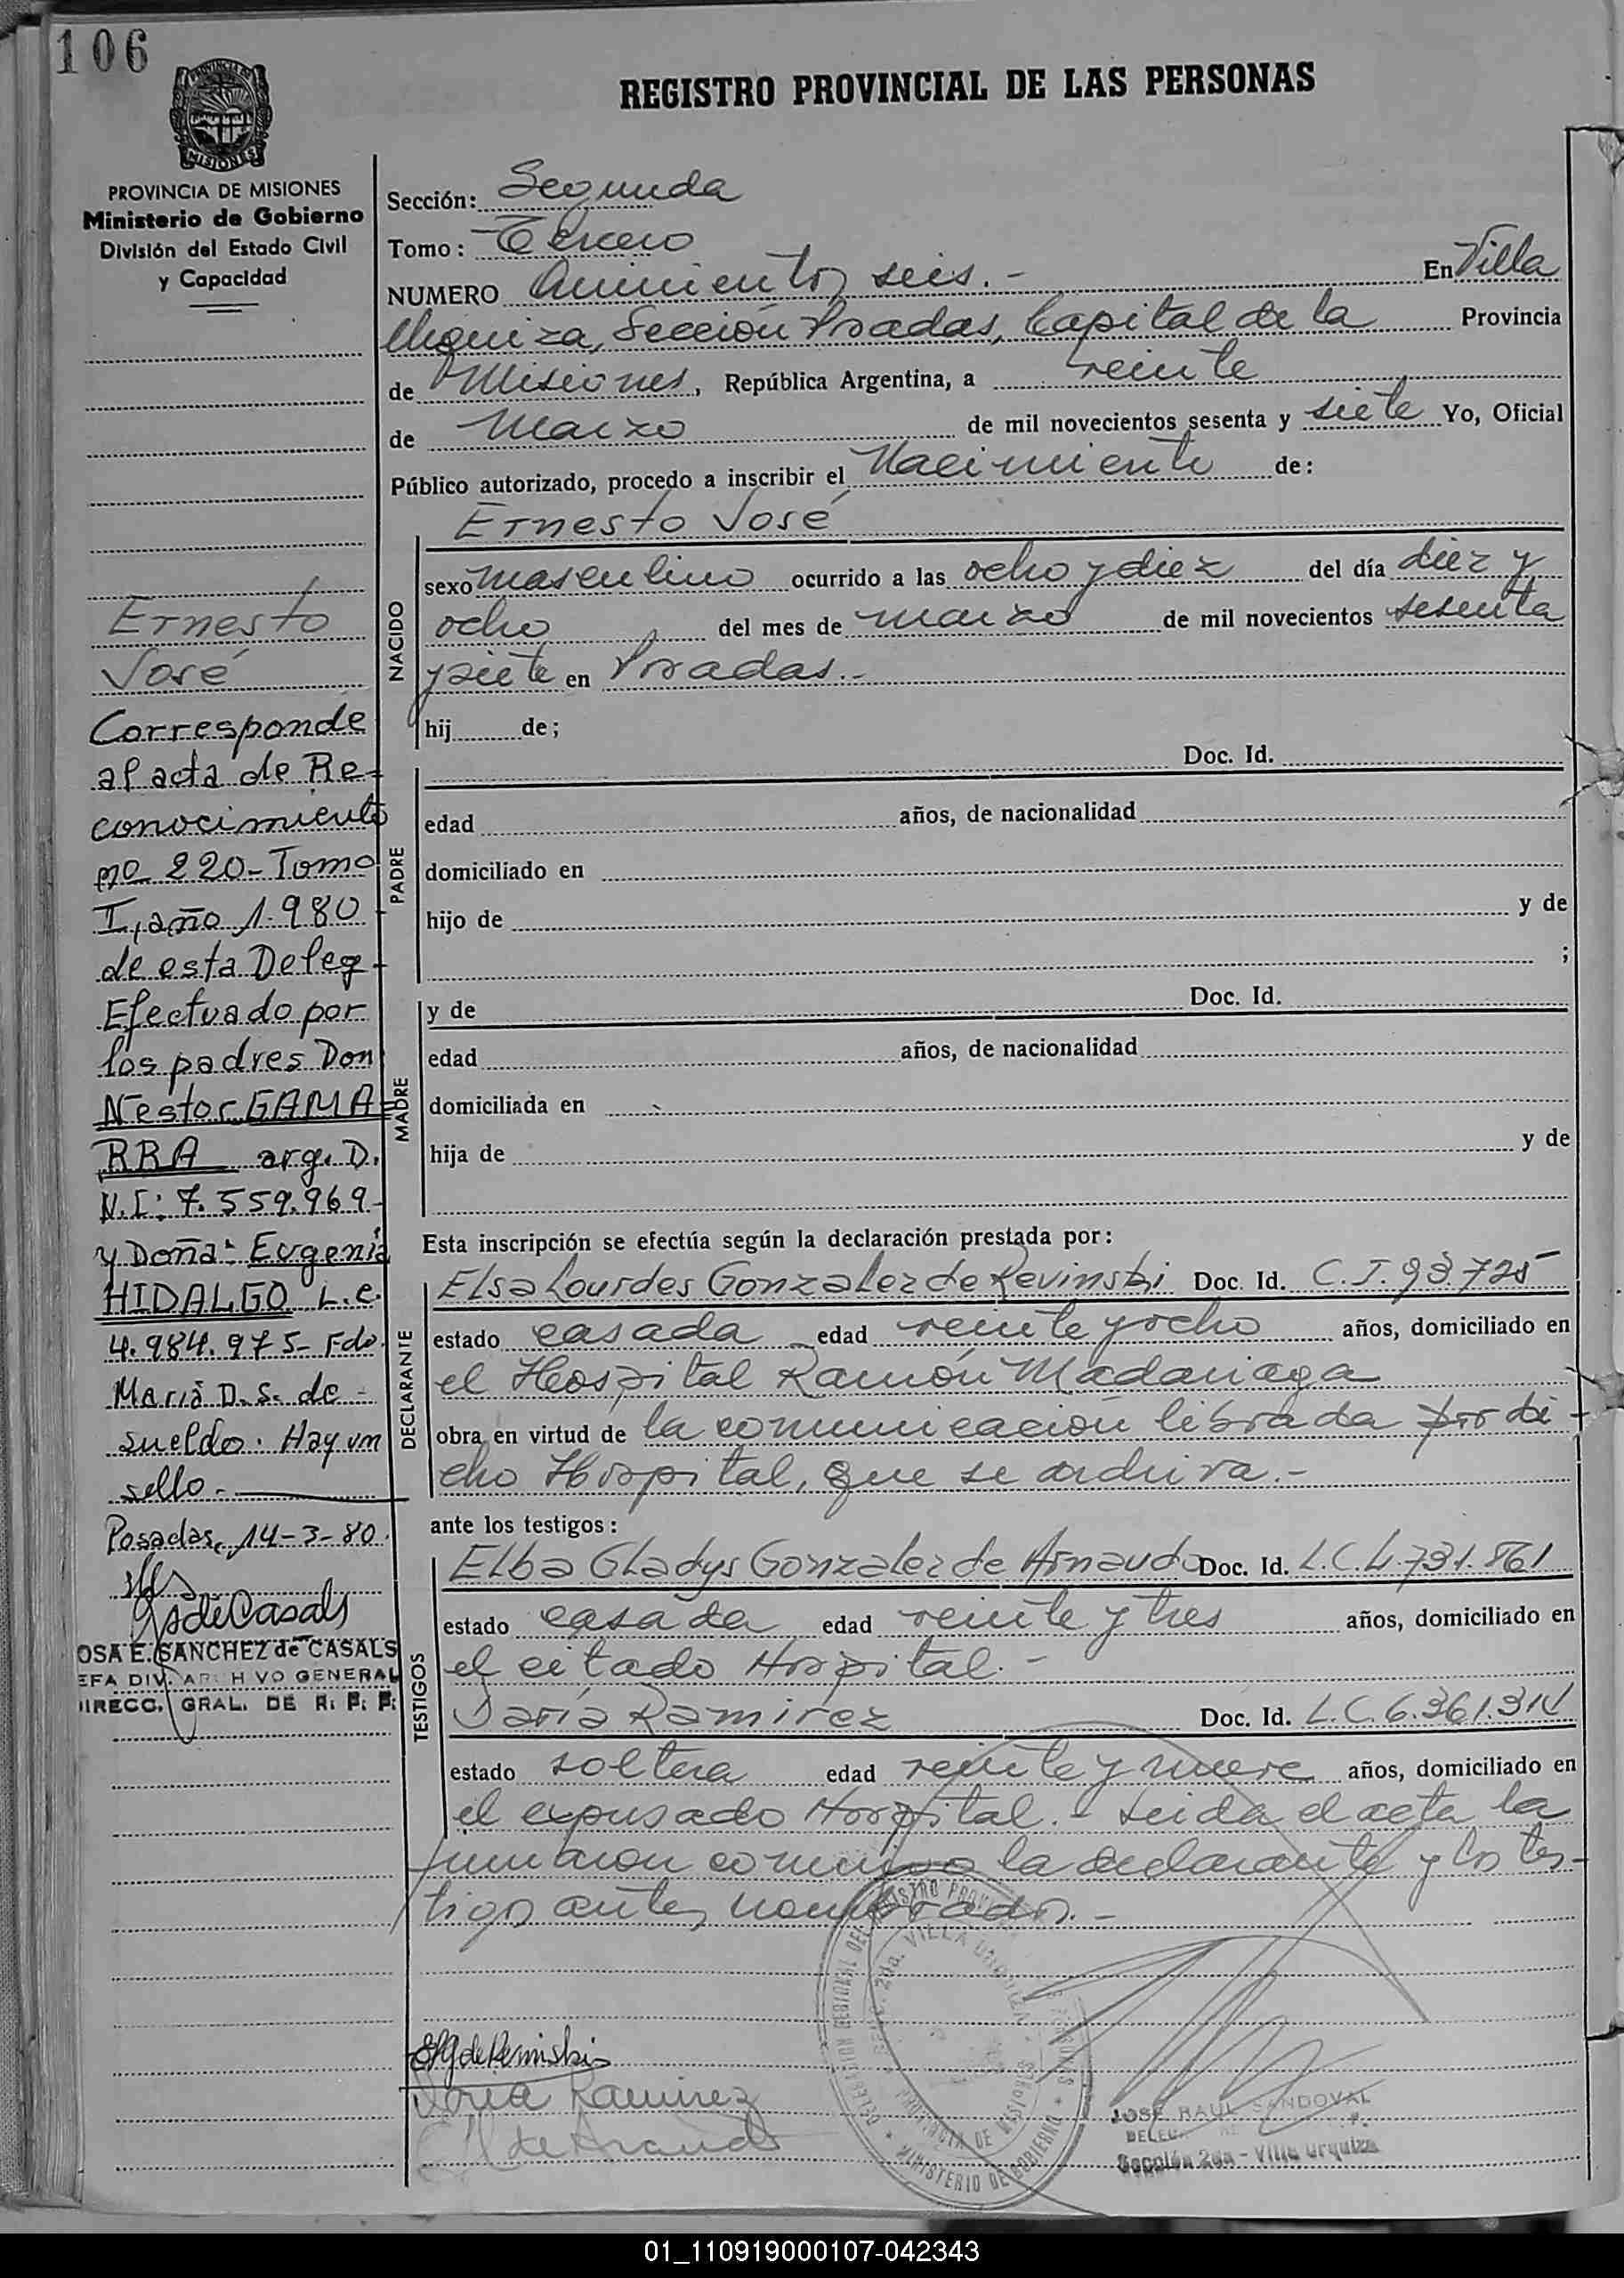 106
REGISTRO PROVINCIAL DE LAS PERSONAS
PROVINCIA DE MISIONES
MISIONES
PROVINCIA DE MISIONES
Ministerio de Gobierno
División del Estado Civil
y Capacidad
Ernesto
José
Corresponde
al acta de Re-
conocimiento
no 220- Tomo
I, año 1.980
de esta Deleg-
Efectuado por
los padres Don
Nestor GAMA=
RRA arg. D.
N.I: 7.559.969-
y Doña: Eugenia
HIDALGO L.C.
4.984.975- Fdo.
Maria D.S. de -
sueldo. Hay un
sello.-
Posadas, 14-3-80.
OSA E. SANCHEZ de CASALS
EFA DIV. ARCHIVO GENERAL
DIRECC. GRAL. DE R. P. P.
Sección: Segunda
Tomo: Tercero
NUMERO Quinientos seis.- En Villa
Urquiza, Sección Posadas, Capital de la Provincia
de Misiones, República Argentina, a veinte
de Marzo de mil novecientos sesenta y siete Yo, Oficial
Público autorizado, procedo a inscribir el Nacimiento de:
Ernesto José
NACIDO
sexo masculino ocurrido a las ocho y diez del día diez y
ocho del mes de marzo de mil novecientos sesenta
y siete en Posadas.-
hij de;
Doc. Id.
PADRE
edad años, de nacionalidad
domiciliado en
hijo de y de
;
y de Doc. Id.
MADRE
edad años, de nacionalidad
domiciliada en
hija de y de
Esta inscripción se efectúa según la declaración prestada por:
Elsa Lourdes Gonzalez de Kevinski Doc. Id. C.I. 93.725
DECLARANTE
estado casada edad veinte y ocho años, domiciliado en
el Hospital Ramón Madariaga
obra en virtud de la comunicación librada por di-
cho Hospital, que se archiva.-
ante los testigos:
Elba Gladys Gonzalez de Arnaudo Doc. Id. L.C. 4.731.861
TESTIGOS
estado casada edad veinte y tres años, domiciliado en
el citado Hospital.-
Daría Ramirez Doc. Id. L.C. 6.361.314
estado soltera edad veinte y nueve años, domiciliado en
el expresado Hospital.- Leída el acta la
firmaron conmigo la declarante y los tes-
tigos antes nombrados.-
Daria Ramirez
DELEGACION REGIONAL DEL REGISTRO PROVINCIAL DE LAS PERSONAS
MINISTERIO DE GOBIERNO
2da. VILLA URQUIZA
PROVINCIA DE MISIONES
JOSE RAUL SANDOVAL
Sección 2da - Villa Urquiza
01_110919000107-042343